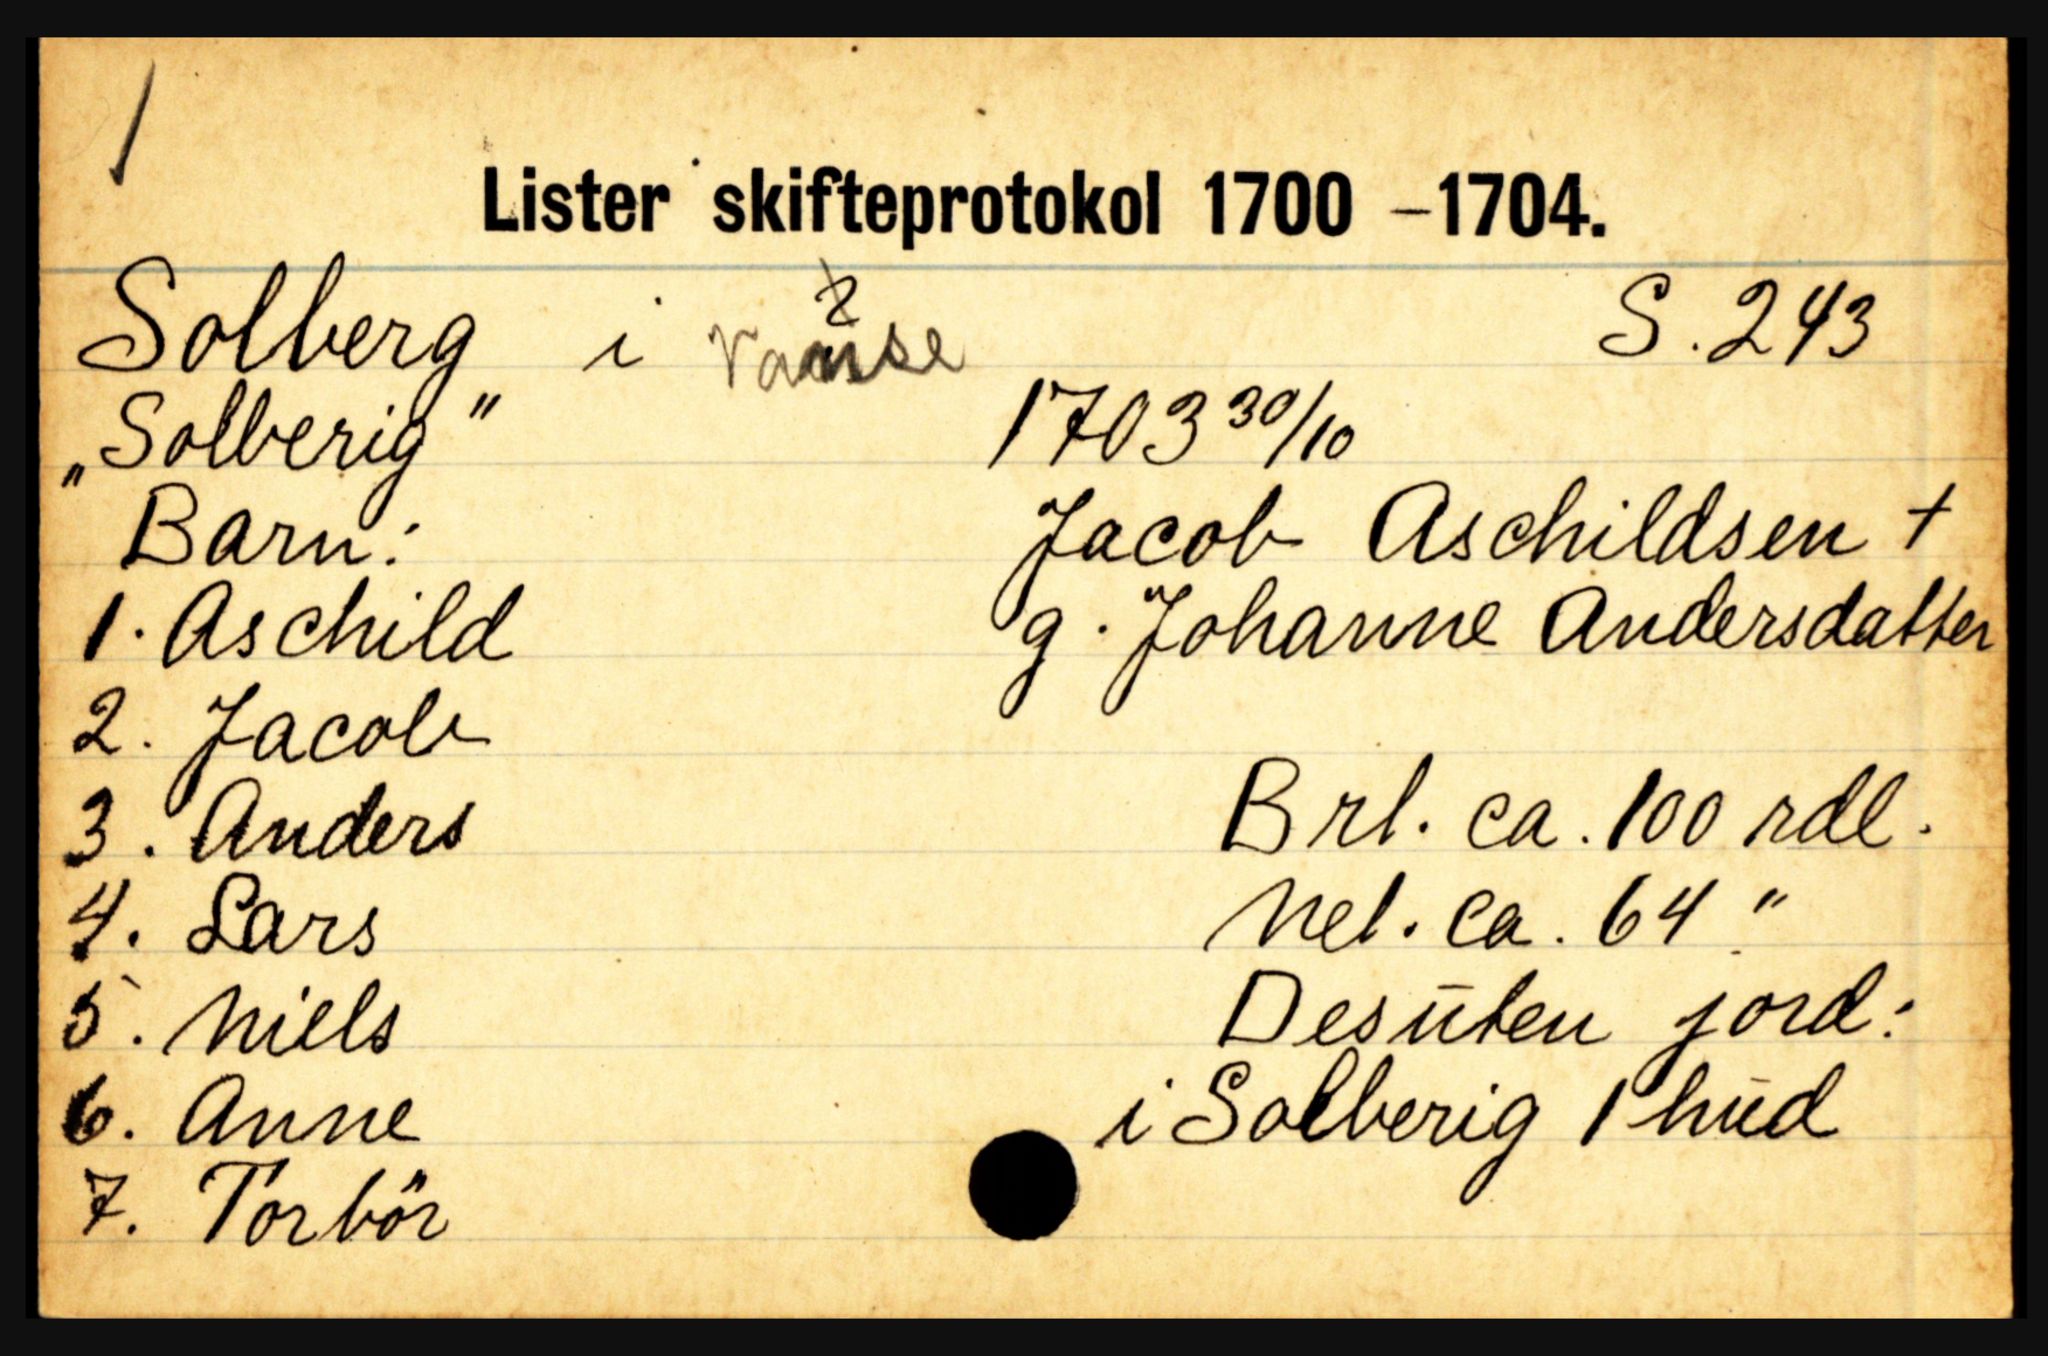 1
Lister skifteprotokol 1700 -1704.
Solberg i Vanse S. 243
„Solberig" 1703 30/10
Barn: Jacob Aschildsen +
1. Aschild g. Johanne Andersdatter
2. Jacob
3. Anders Brt. ca. 100 rdl.
4. Lars Net. ca. 64 "
5. Niels Desuten jord:
6. Anne i Solberig 1 hud
7. Torbör